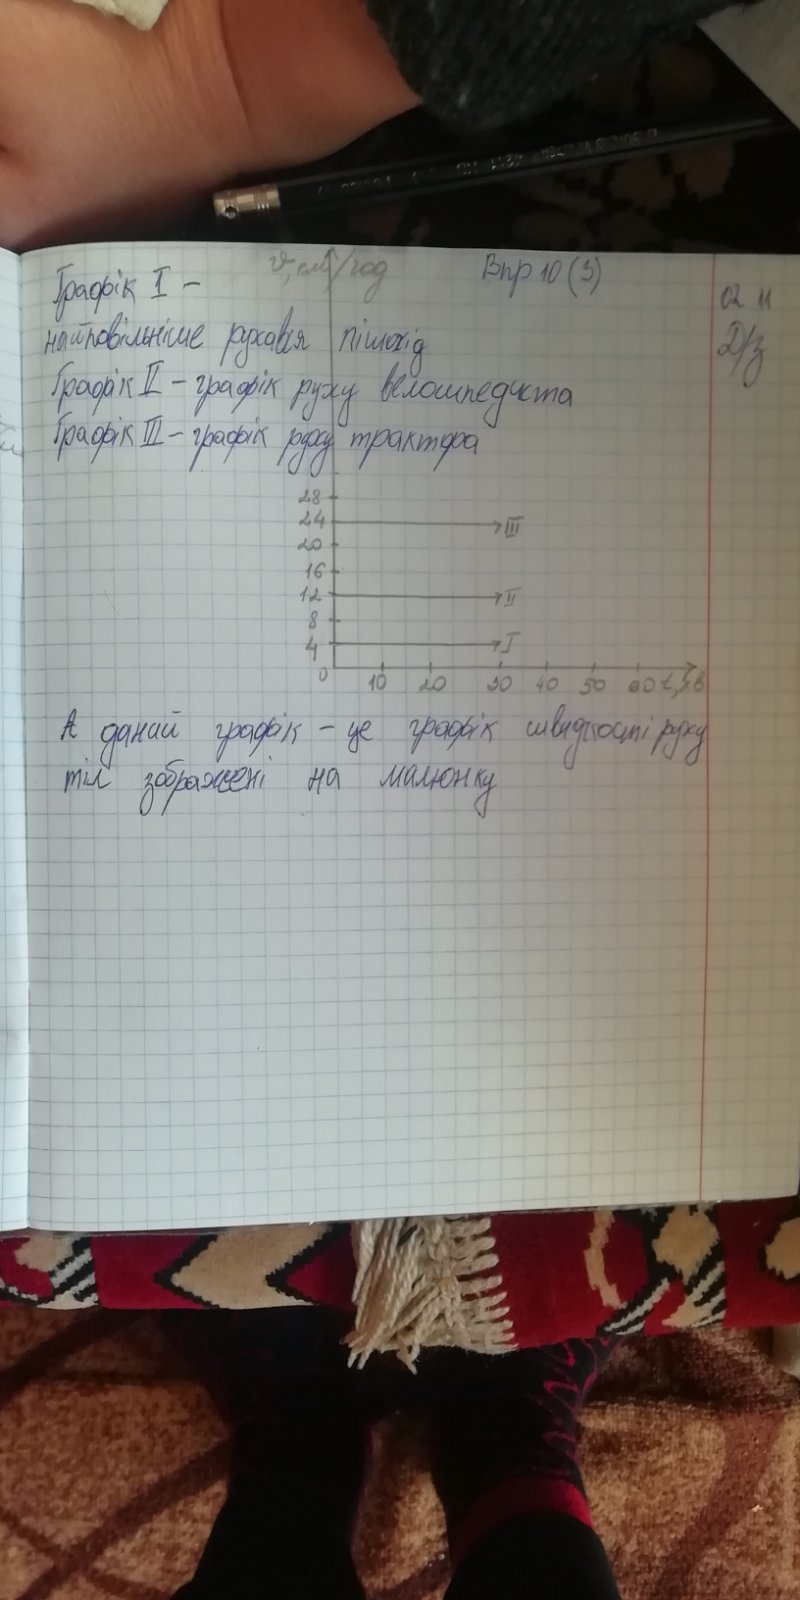 v, см/год Впр 10 (3)
02 11
Д/з
Графік I –
найповільніше рухався пішохід
Графік II – графік руху велосипедиста
Графік III – графік руху трактора
28
24 III
20
16
12 II
8
4 I
0 10 20 30 40 50 60 t, хв
А даний графік – це графік швидкості руху
тіл зображені на малюнку